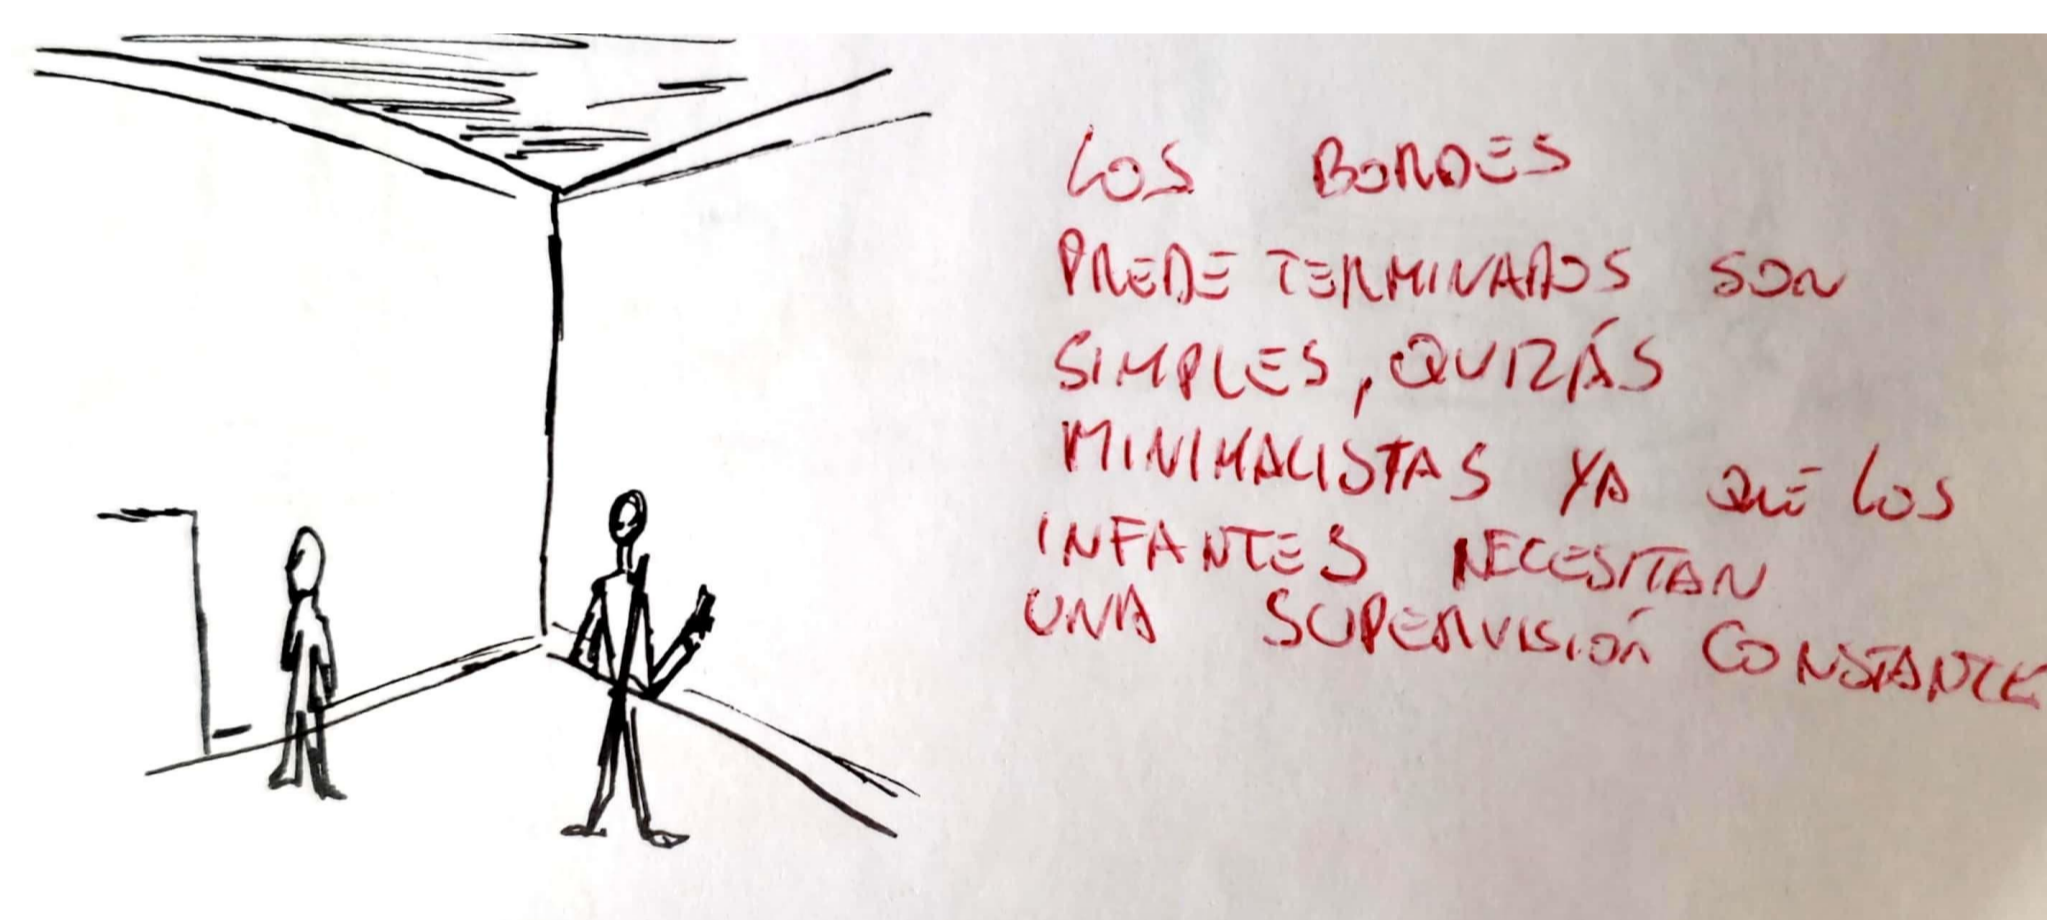 LOS BORDES
PREDETERMINADOS SON
SIMPLES, QUIZÁS
MINIMALISTAS YA QUE LOS
INFANTES NECESITAN
UNA SUPERVISIÓN CONSTANTE